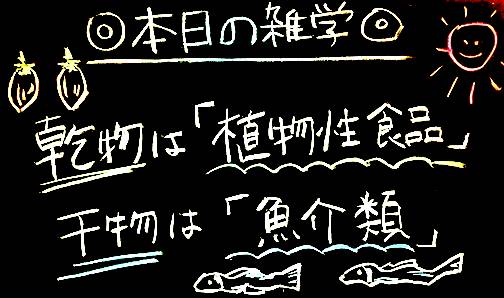 ◎本日の雑学◎
乾物は「植物性食品」
干物は「魚介類」